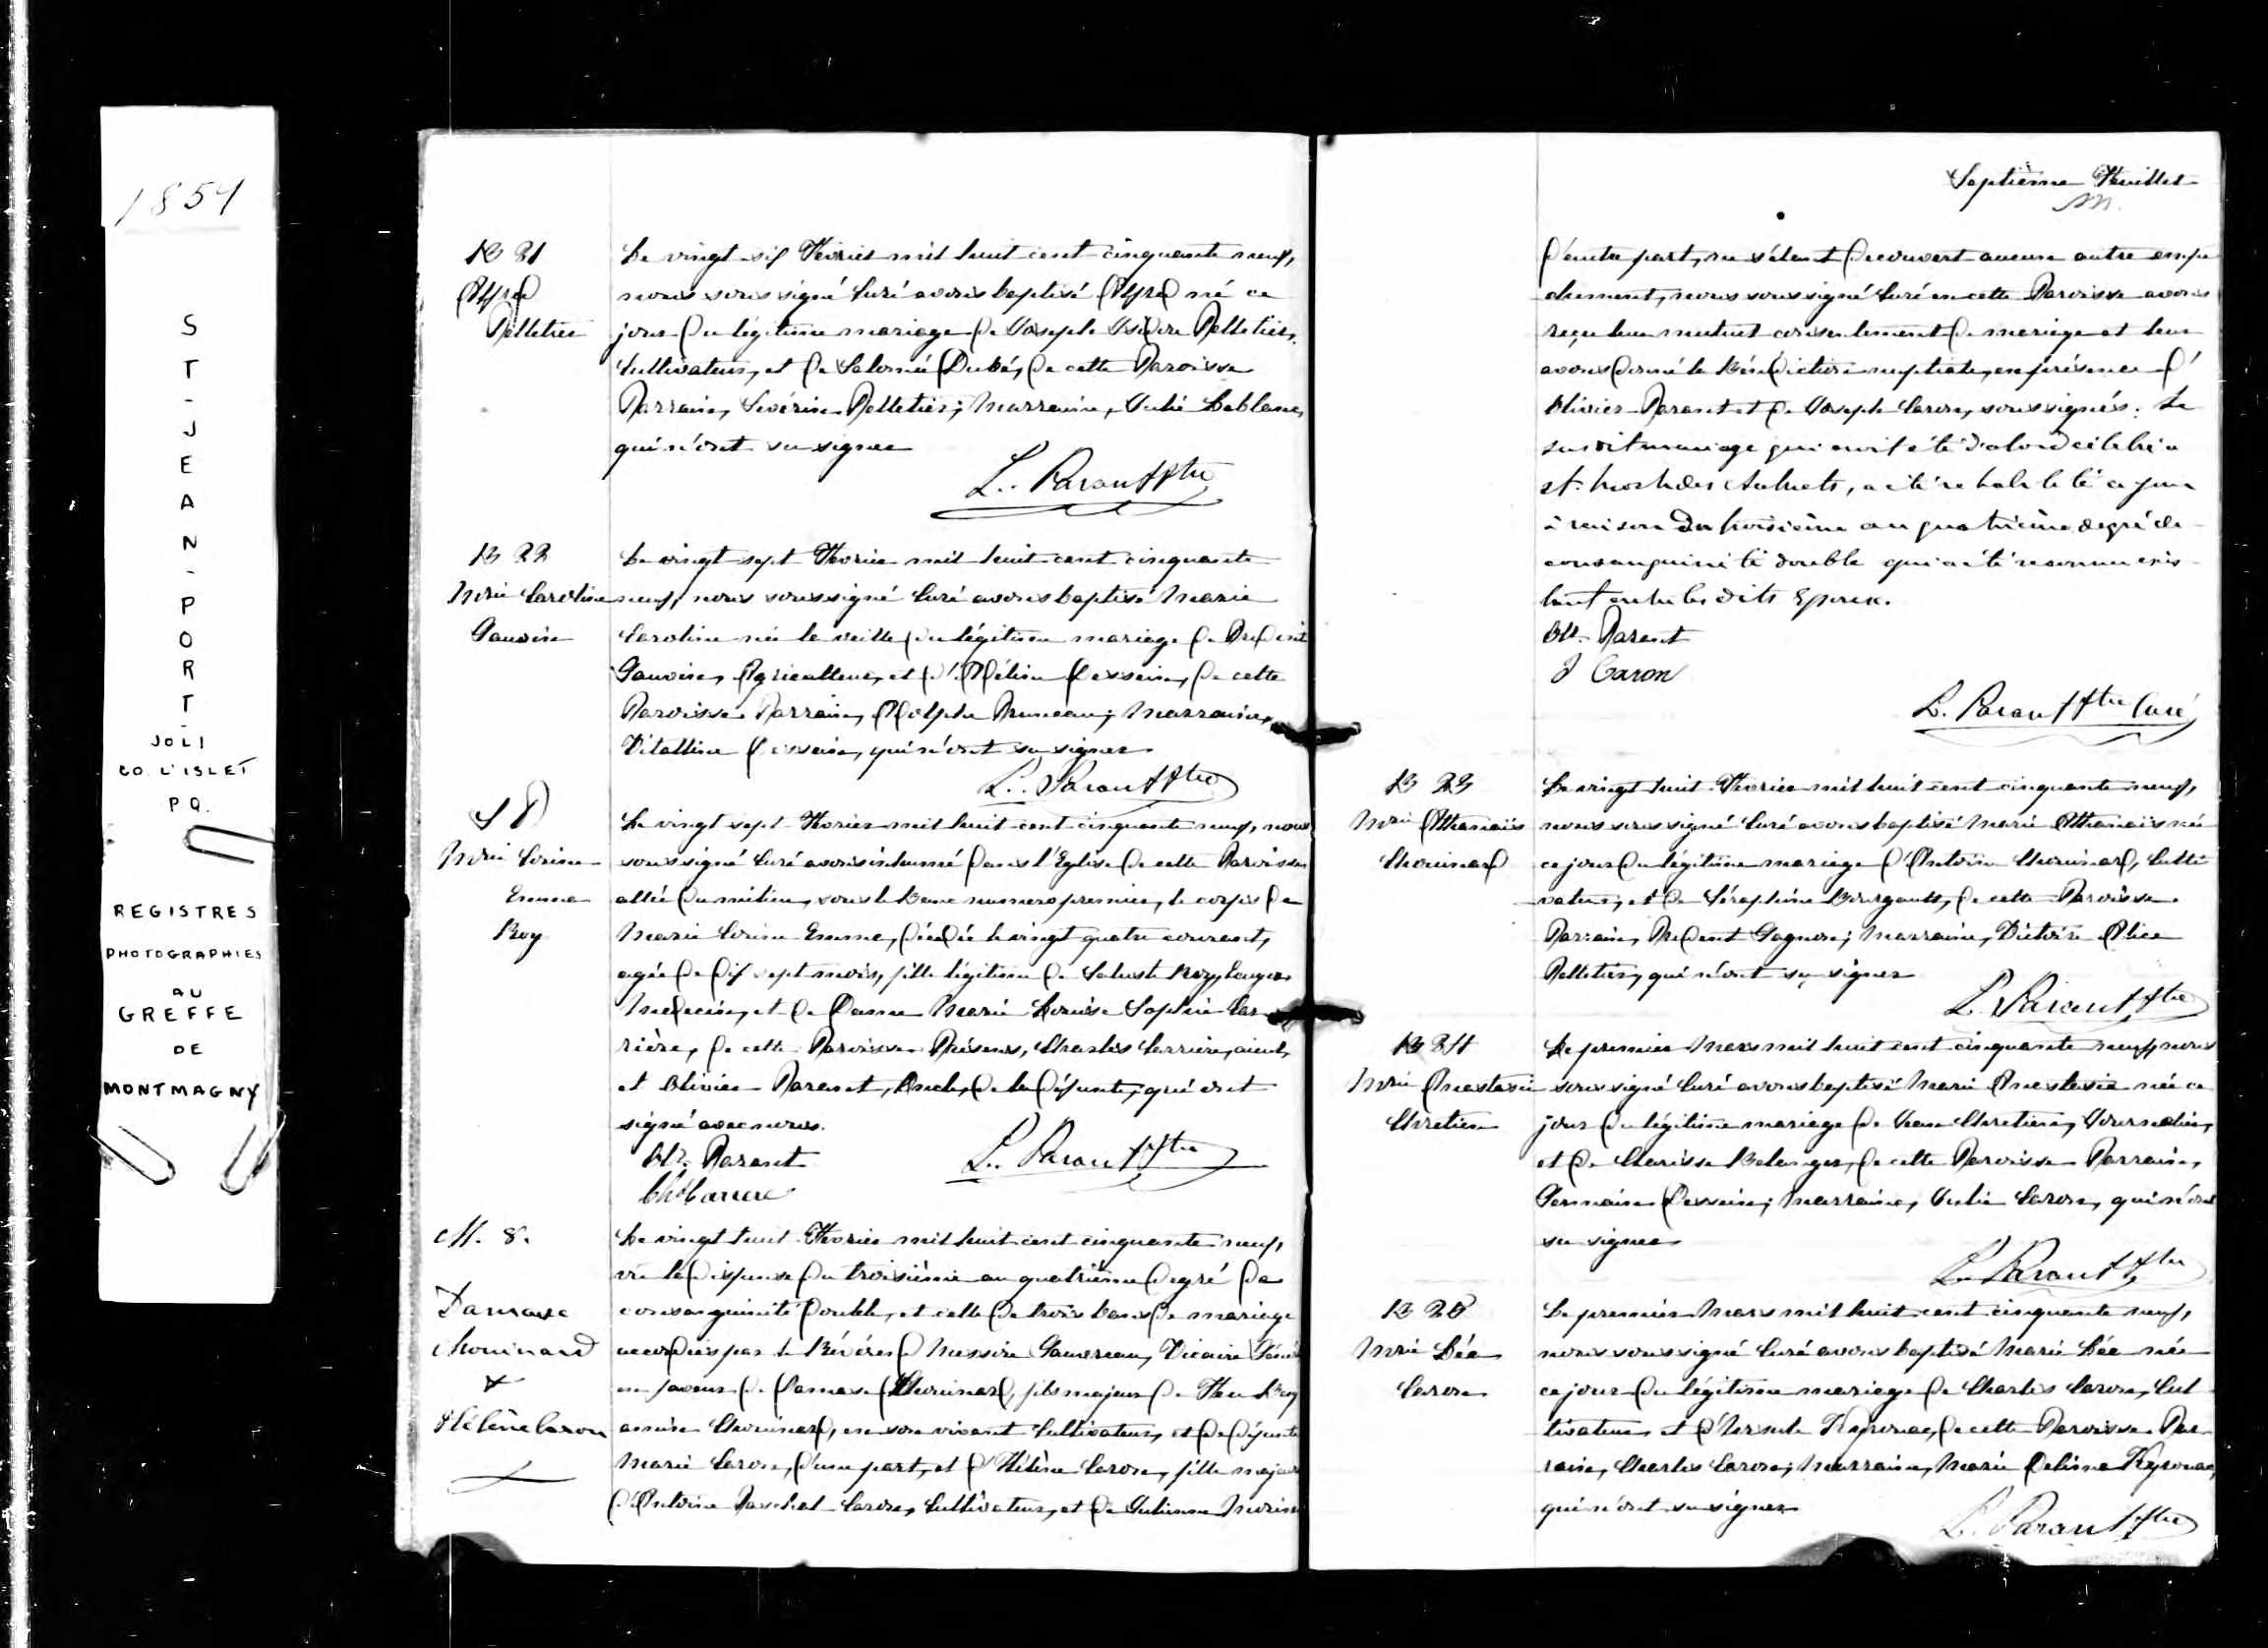 1859
ST-JEAN-PORT-
JOLI
CO. L'ISLET
P.Q.
REGISTRES
PHOTOGRAPHIES
AU
GREFFE
DE
MONTMAGNY
B 21
Alfred
Pelletier
Le vingt six Fevrier mil huit cent cinquante neuf,
nous sous signé Curé avons baptisé Alfred né ce
jour du légitime mariage de Joseph Isidore Pelletier,
Cultivateur, et de Salomé Dubé, de cette Paroisse
Parrain, Sévérin Pelletier; Marraine, Julie Leblanc,
qui n'ont su signer
L. Parant Ptre
B 22
Mrie Caroline
Gauvin
Le vingt sept Fevrier mil huit cent cinquante
neuf, nous soussigné Curé avons baptisé Marie
Caroline née la veille du légitime mariage de Prudent
Gauvin, Agriculteur, et d'Adéline Dessein, de cette
Paroisse Parrain, Adolphe Pruneau; Marraine,
Vitalline Dessein, qui n'ont su signer
L. Parant Ptre
S 8
Mrie Corine
Emma
Roy
Le vingt sept Fevrier mil huit cent cinquante neuf, nous
soussigné Curé avons inhumé dans l'Eglise de cette Paroisse
allée du milieu, sous le Banc numero premier, le corps de
Marie Corine Emma, décédée le vingt quatre courant,
agée de dix sept mois, fille légitime de Saluste Roy,
Medecin, et de Dame Marie Louise Sophie Car
rière, de cette Paroisse Présens, Charles Carrière, aieul,
et Olivier Parant, Oncle, de la défunte, qui ont
signé avec nous.
Ol. Parant
Chs Carriere
L. Parant Ptre
M. 8.
Damase
Chouinard
&
Hélène Caron
Le vingt huit Fevrier mil huit cent cinquante neuf,
vu la dispense du troisième au quatrième degré de
consanguinité double, et celle de trois bans de mariage
accordées par le Révérend Messire Gauvreau, Vicaire Géné
en faveur de Damase Chouinard, fils majeur de Feu
Chouinard, en son vivant Cultivateur, et de défunte
Marie Caron, d'une part, et d'Hélène Caron, fille majeure
d'Antoine Paschal Caron, Cultivateur, et de Julienne Morin
Septième Feuillet
d'autre part, ne s'étant decouvert aucun autre empe
chement, nous soussigné Curé en cette Paroisse avons
reçu leur mutuel consentement de mariage et leur
avons donné la Bénédiction nuptiale, en présence d'
Olivier Parant et de Joseph Caron, soussignés. Le
susdit mariage qui avait été d'abord célébré a
St. Roch des Aulnets, a été réhabilité ce jour
à raison du troisième au quatrième degré de
consanguinité double qui a été reconnu exis
tant entre les dits Epoux.
Ol. Parant
J Caron
L. Parant Ptre Curé
B 23
Mrie Athanaïs
Chouinard
Le vingt huit Fevrier mil huit cent cinquante neuf,
nous sous signé Curé avons baptisé Marie Athanaïs née
ce jour du légitime mariage d'Antoine Chouinard, Culti
vateur, et de Séraphine Bourgault, de cette Paroisse
Parrain, Prudent Gagnon; Marraine, Victoire Alice
Pelletier, qui n'ont su signer
L. Parant Ptre
B 24
Mrie Anastasie
Chretien
Le premier Mars mil huit cent cinquante neuf, nous
sous signé Curé avons baptisé Marie Anastasie née ce
jour du légitime mariage de Jean Chretien, Journalier,
et de Clarisse Belanger, de cette Paroisse Parrain,
Germain Dessein; Marraine, Julie Caron, qui n'ont
su signer
L. Parant Ptre
B 25
Mrie Léa
Caron
Le premier Mars mil huit cent cinquante neuf,
nous sous signé Curé avons baptisé Marie Léa née
ce jour du légitime mariage de Charles Caron, Cul
tivateur et d'Ursule Kyrouac, de cette Paroisse Par
rain, Charles Caron; Marraine, Marie Delima Kyrouac,
qui n'ont su signer
L. Parant Ptre